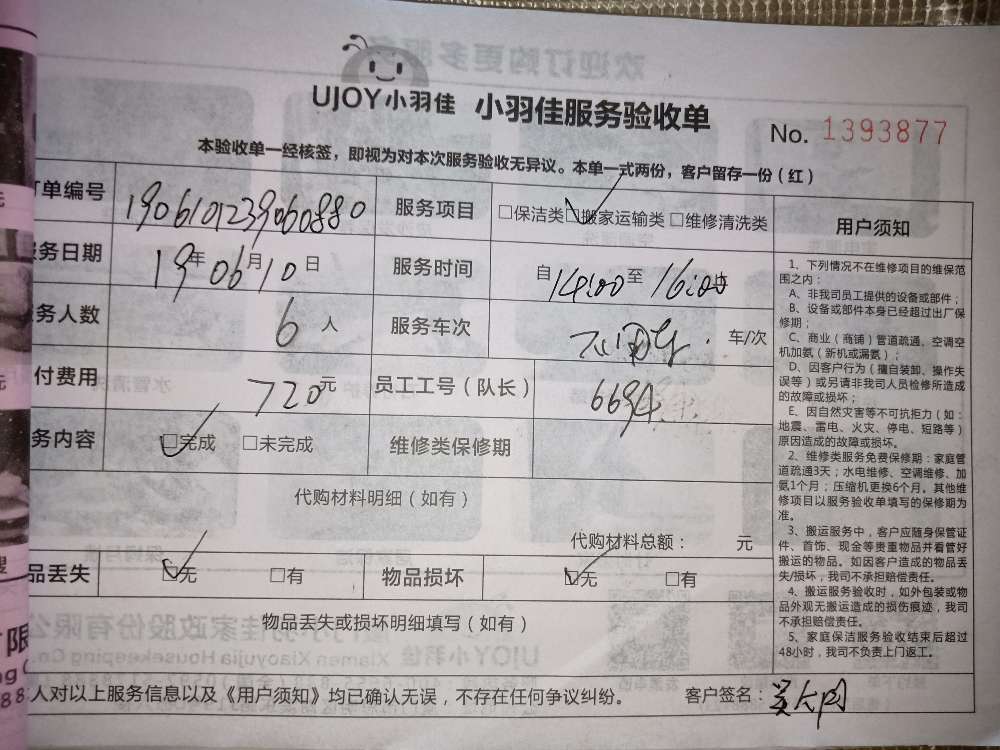 UJOY小羽佳 小羽佳服务验收单
No. 1393877
本验收单一经核签，即视为对本次服务验收无异议。本单一式两份，客户留存一份(红)
订单编号 1906101239060880 服务项目 □保洁类 □搬家运输类 □维修清洗类
服务日期 19年06月10日 服务时间 自14:00至16:00
服务人数 6人 服务车次 车/次
付费用 720元 员工工号(队长) 6694
服务内容 □完成 □未完成 维修类保修期
代购材料明细(如有)
代购材料总额： 元
品丢失 □无 □有 物品损坏 □无 □有
物品丢失或损坏明细填写(如有)
人对以上服务信息以及《用户须知》均已确认无误，不存在任何争议纠纷。 客户签名：
用户须知
1、下列情况不在维修项目的维保范
围之内：
A、非我司员工提供的设备或部件；
B、设备或部件本身已经超过出厂保
修期；
C、商业(商铺)管道疏通、空调空
机加氨(新机或漏氨)；
D、因客户行为(擅自装卸、操作失
误等)或另请非我司人员检修所造成
的故障或损坏；
E、因自然灾害等不可抗拒力(如：
地震、雷电、火灾、停电、短路等)
原因造成的故障或损坏。
2、维修类服务免费保修期：家庭管
道疏通3天；水电维修、空调维修、加
氨1个月；压缩机更换6个月。其他维
修项目以服务验收单填写的保修期为
准。
3、搬运服务中，客户应随身保管证
件、首饰、现金等贵重物品并看管好
搬运的物品。如因客户造成的物品丢
失/损坏，我司不承担赔偿责任。
4、搬运服务验收时，如外包装或物
品外观无搬运造成的损伤痕迹，我司
不承担赔偿责任。
5、家庭保洁服务验收结束后超过
48小时，我司不负责上门返工。